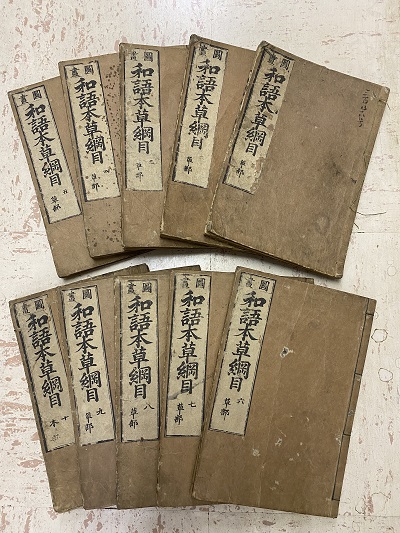 圖畫
和語本草綱目
草部
圖畫
和語本草綱目
草部
圖畫
和語本草綱目
三 草部
圖畫
和語本草綱目
四 草部
圖畫
和語本草綱目
五 草部
圖畫
和語本草綱目
六 草部
圖畫
和語本草綱目
七 草部
圖畫
和語本草綱目
八 草部
圖畫
和語本草綱目
九 草部
圖畫
和語本草綱目
十 木